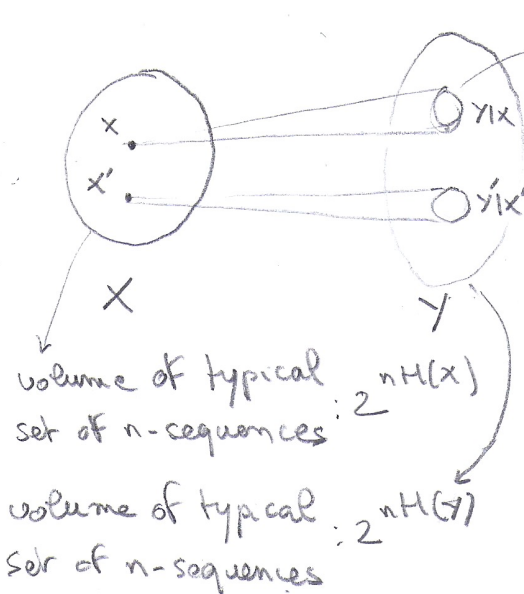 x
y|x
x'
y'|x'
X
Y
volume of typical
set of n-sequences : 2^nH(X)
volume of typical
set of n-sequences : 2^nH(Y)